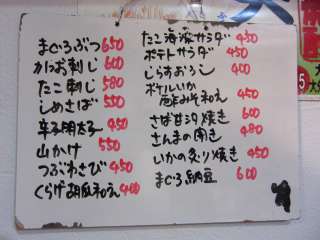 まぐろぶつ 650
かつお刺し 600
たこ刺し 580
しめさば 550
辛子明太子 450
山かけ 550
つぶわさび 450
くらげ胡瓜和え 400
たこ海藻サラダ 450
ポテトサラダ 450
しらすおろし 400
ボイルいか
酢みそ和え 450
さば甘汐焼き 600
さんまの開き 480
いかの炙り焼き 450
まぐろ納豆 600